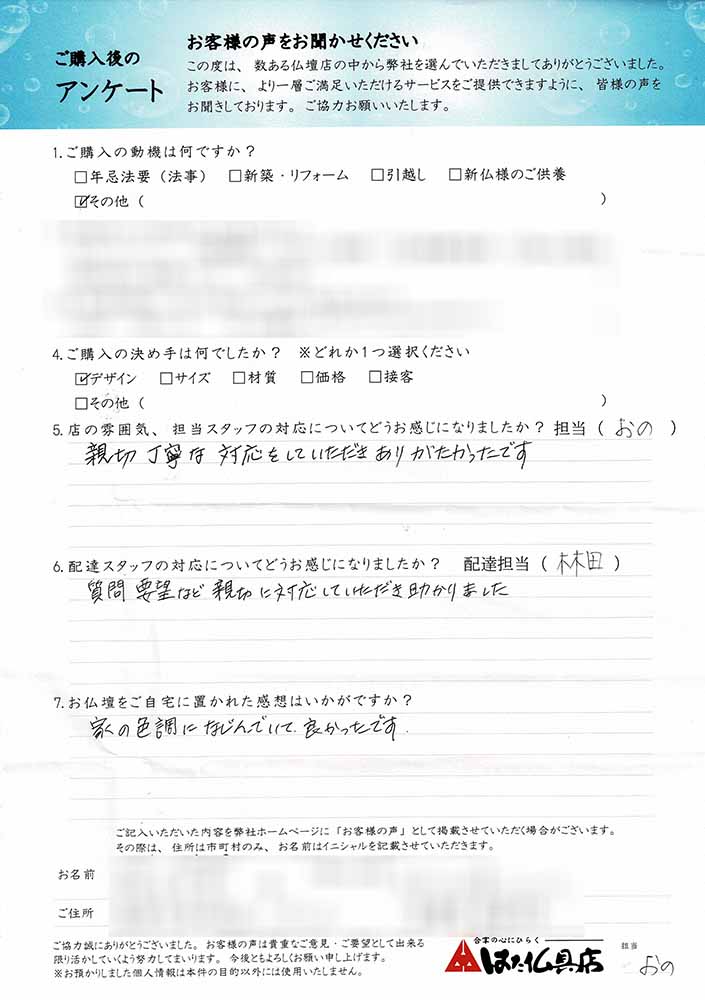 ご購入後の
アンケート
お客様の声をお聞かせください
この度は、数ある仏壇店の中から弊社を選んでいただきましてありがとうございました。
お客様に、より一層ご満足いただけるサービスをご提供できますように、皆様の声を
お聞きしております。ご協力お願いいたします。
1.ご購入の動機は何ですか？
□年忌法要（法事） □新築・リフォーム □引越し □新仏様のご供養
☑その他（ ）
4.ご購入の決め手は何でしたか？ ※どれか1つ選択ください
☑デザイン □サイズ □材質 □価格 □接客
□その他（ ）
5.店の雰囲気、担当スタッフの対応についてどうお感じになりましたか？担当（おの）
親切丁寧な対応をしていただきありがたかったです
6.配達スタッフの対応についてどうお感じになりましたか？ 配達担当（林田）
質問要望など親切に対応していただき助かりました
7.お仏壇をご自宅に置かれた感想はいかがですか？
家の色調になじんでいて.良かったです.
ご記入いただいた内容を弊社ホームページに「お客様の声」として掲載させていただく場合がございます。
その際は、住所は市町村のみ、お名前はイニシャルを記載させていただきます。
お名前
ご住所
ご協力誠にありがとうございました。お客様の声は貴重なご意見・ご要望として出来る
限り活かしていくよう努力してまいります。今後ともよろしくお願い申し上げます。
※お預かりしました個人情報は本件の目的以外には使用いたしません。
合掌の心にひらく
はた仏具店
担当
おの